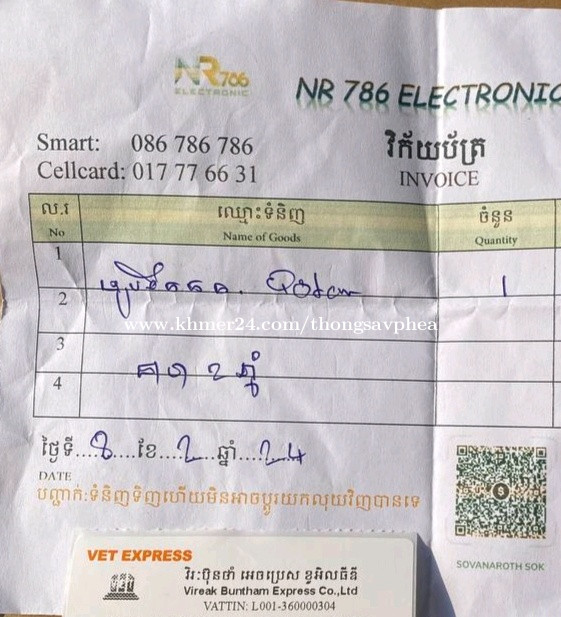 NR786
ELECTRONIC
NR 786 ELECTRONIC
Smart: 086 786 786
Cellcard: 017 77 66 31
វិក័យប័ត្រ
INVOICE
ល.រ ឈ្មោះទំនិញ ចំនួន
No Name of Goods Quantity
1
1
2
www.khmer24.com/thongsavphea
3
4
ថ្ងៃទី....8....ខែ....2....ឆ្នាំ....24
DATE
បញ្ជាក់:ទំនិញទិញហើយមិនអាចប្ដូរយកលុយវិញបានទេ
SOVANAROTH SOK
VET EXPRESS
វីរៈប៊ុនថាំ អេចប្រេស ខូអិលធីឌី
Vireak Buntham Express Co.,Ltd
VATTIN: L001-360000304